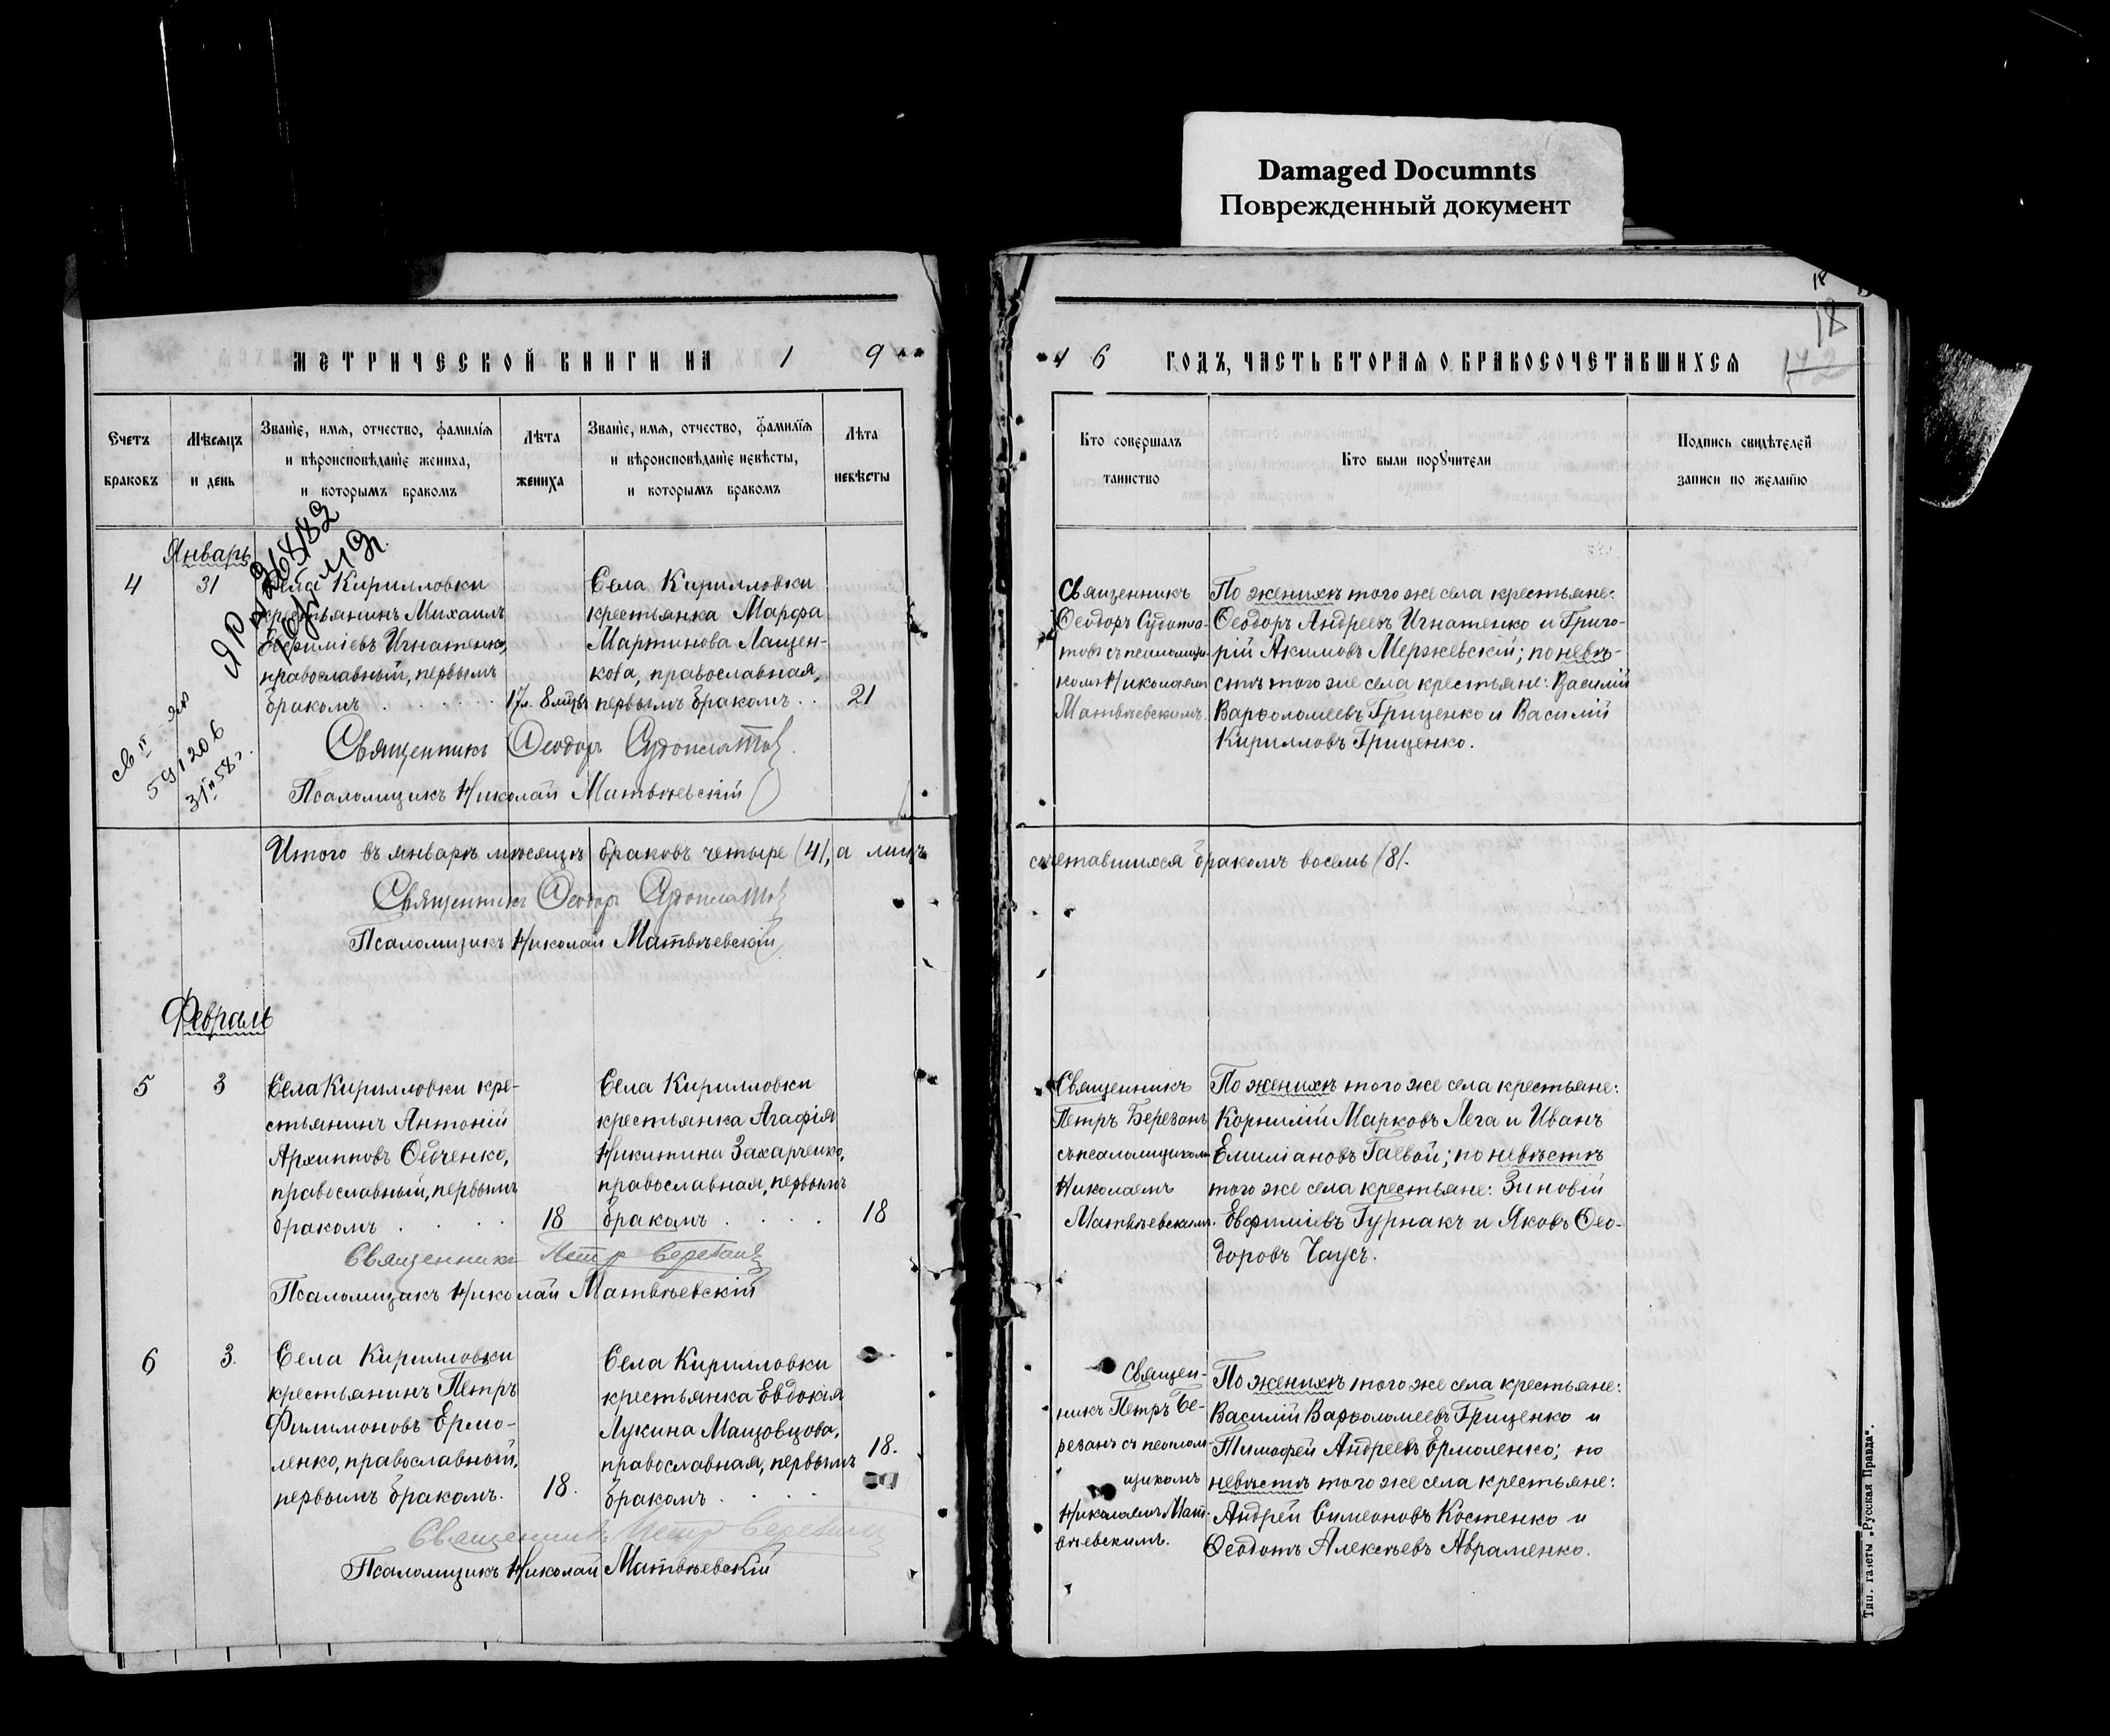 Damaged Documnts
Поврежденный документ
18
18
МЕТРИЧЕСКОЙ КНИГИ НА 1 9
1 6 ГОДЪ, ЧАСТЬ ВТОРАЯ О БРАКОСОЧЕТАВШИХСЯ
Счетъ
браковъ
Мѣсяцъ
и день
Званіе, имя, отчество, фамилія
и вѣроисповѣданіе жениха,
и которымъ бракомъ
Лѣта
жениха
Званіе, имя, отчество, фамилія
и вѣроисповѣданіе невѣсты,
и которымъ бракомъ
Лѣта
невѣсты
Кто совершалъ
таинство
Кто были поручители
Подпись свидѣтелей
записи по желанію
Январь
4
31
Села Кирилловки
крестьянинъ Михаилъ
Евфиміевъ Игнатенко,
православный, первымъ
бракомъ
17 л. 8 мѣс.
Села Кирилловки
крестьянка Марфа
Мартинова Лащен-
кова, православная,
первымъ бракомъ
21
Священникъ
Ѳеодоръ
съ псаломщи-
комъ Николаемъ
Матвѣевскимъ.
По женихѣ того же села крестьяне:
Ѳеодоръ Андреевъ Игнатенко и Григо-
рій Акимовъ Мержевскій; по невѣ-
стѣ того же села крестьяне: Василій
Варѳоломеевъ Гриценко и Василій
Кирилловъ Гриценко.
Священникъ Ѳеодоръ
Псаломщикъ Николай Матвѣевскій
59 1206
31 58 г.
Итого въ январѣ мѣсяцѣ браковъ четыре (4), а лицъ
сочетавшихся бракомъ восемь (8).
Священникъ Ѳеодоръ
Псаломщикъ Николай Матвѣевскій
Февраль
5
3
Села Кирилловки кре-
стьянинъ Антоній
Архиповъ Овченко,
православный, первымъ
бракомъ
18
Села Кирилловки
крестьянка Агафія
Никитина Захарченко,
православная, первымъ
бракомъ
18
Священникъ
Петръ Березанъ
съ псаломщикомъ
Николаемъ
Матвѣевскимъ.
По женихѣ того же села крестьяне:
Корнилій Марковъ Лега и Иванъ
Емиліановъ Гаевой; по невѣстѣ
того же села крестьяне: Зиновій
Евфиміевъ Гурнакъ и Яковъ Ѳео-
доровъ Чаусъ.
Священникъ Петръ Березанъ
Псаломщикъ Николай Матвѣевскій
6
3.
Села Кирилловки
крестьянинъ Петръ
Филимоновъ Ермо-
ленко, православный,
первымъ бракомъ.
18.
Села Кирилловки
крестьянка Евдокія
Лукина
православная, первымъ
бракомъ
18.
Священ-
никъ Петръ Бе-
резанъ съ псалом-
щикомъ
Николаемъ Мат-
вѣевскимъ.
По женихѣ того же села крестьяне:
Василій Варѳоломеевъ Гриценко и
Тимофей Андреевъ Ермоленко; по
невѣстѣ того же села крестьяне:
Андрей Симеоновъ Костенко и
Ѳеодотъ Алексѣевъ Авраменко.
Священникъ Петръ Березанъ
Псаломщикъ Николай Матвѣевскій
Тип. газеты „Русская Правда“.